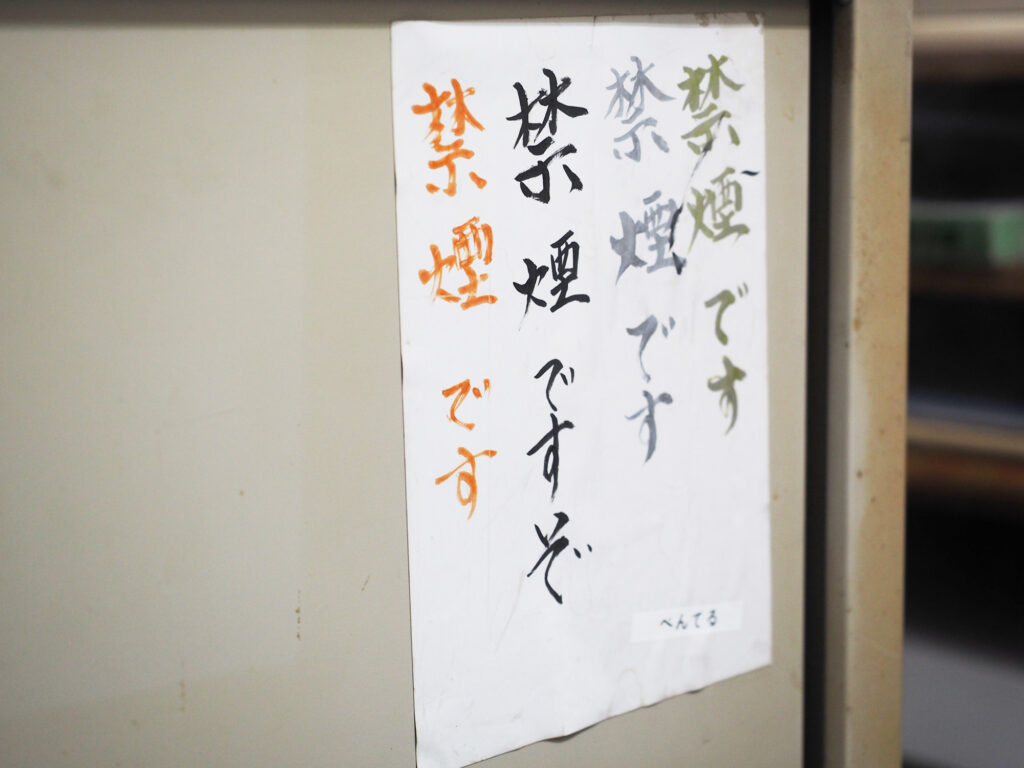 禁煙です
禁煙です
禁煙ですぞ
禁煙です
ぺんてる